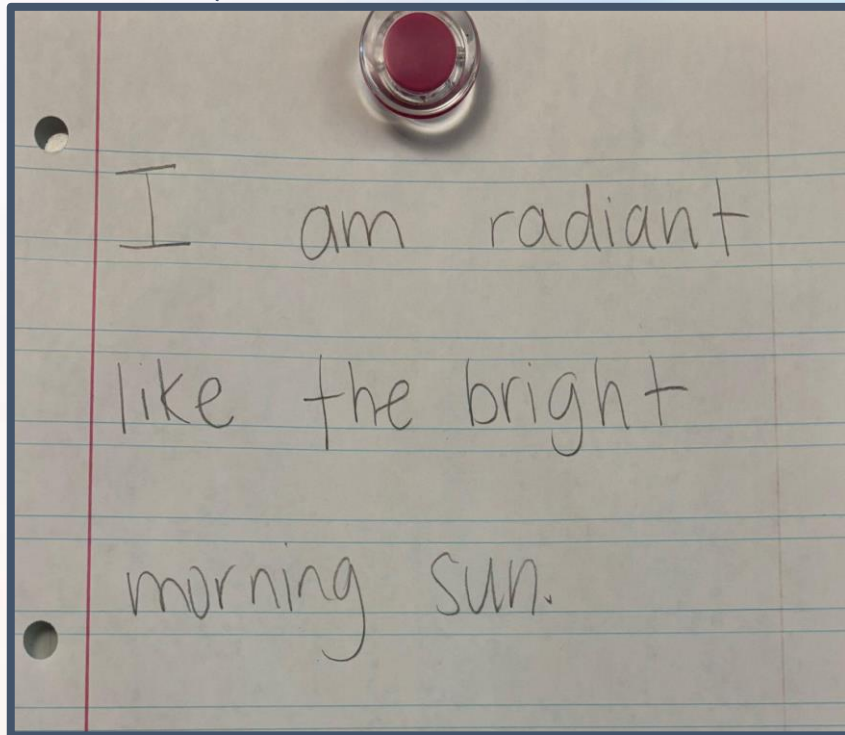 I am radiant
like the bright
morning sun.